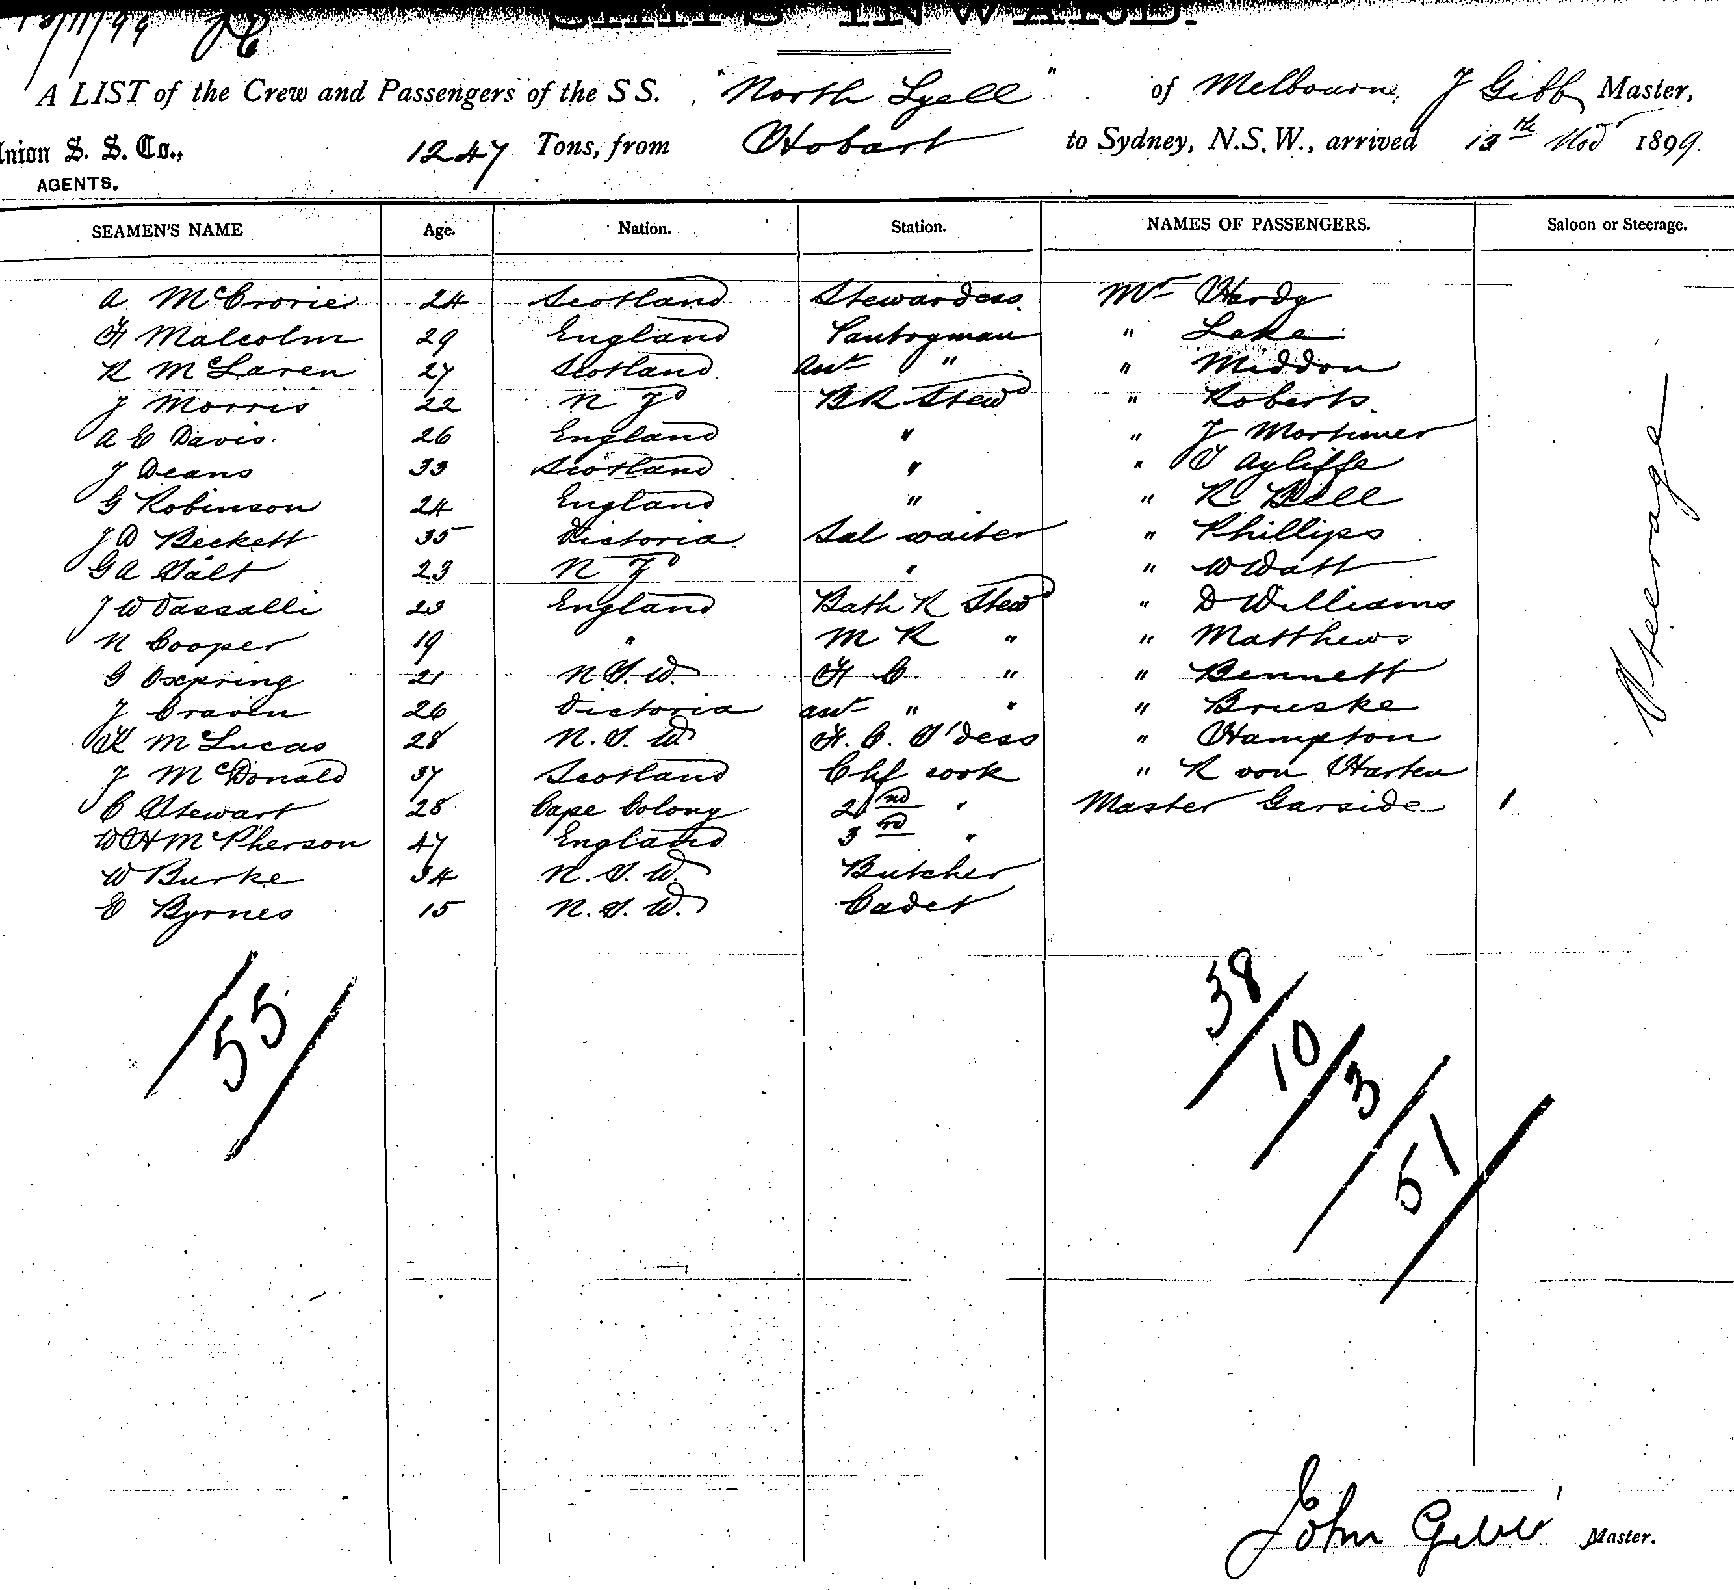 SHIPS INWARD.
13/11/99
A LIST of the Crew and Passengers of the SS. "North Lyell" of Melbourne, J Gibb Master,
Union S. S. Co., 1247 Tons, from Hobart to Sydney, N.S.W., arrived 13th Nov 1899.
AGENTS.
SEAMEN'S NAME Age. Nation. Station. NAMES OF PASSENGERS. Saloon or Steerage.
A McCrorie 24 Scotland Stewardess Mr Hardy
H Malcolm 29 England Pantryman " Lake
R McLaren 27 Scotland Asst " " Middon
J Morris 22 N Zd BR Stewd " Roberts
A E Davis 26 England " " J Mortimer
J Deans 33 Scotland " " T Ayliffe
G Robinson 24 England " " R Bell
J D Beckett 35 Victoria Sal waiter " Phillips
G A Salt 23 N Zd " " W Watt
J W Vassalli 23 England Bath R Stewd " D Williams
N Cooper 19 " M R " " Matthews
G Oxspring 21 N.S.W. F C " " Bennett
J Craven 26 Victoria asst " " " Brieske
K M Lucas 28 N.S.W. F.C. S'dess " Hampton
J McDonald 37 Scotland Chf cook " R von Harten
C Stewart 28 Cape Colony 2nd " Master Garside 1
W H McPherson 47 England 3rd "
W Burke 34 N.S.W. Butcher
E Byrnes 15 N.S.W. Cadet
Steerage
55
38/10/3/51
John Gibb Master.